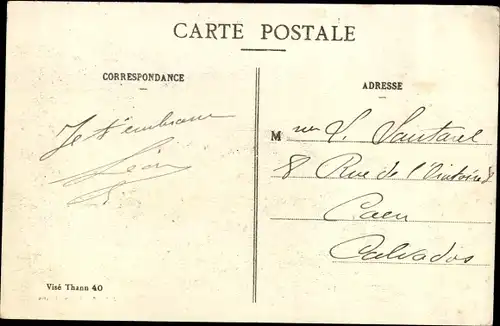 CARTE POSTALE
CORRESPONDANCE
ADRESSE
Je t'embrasse
Léon
Mme L.
8 Rue de l'
Caen
Calvados
Visé Thann 40